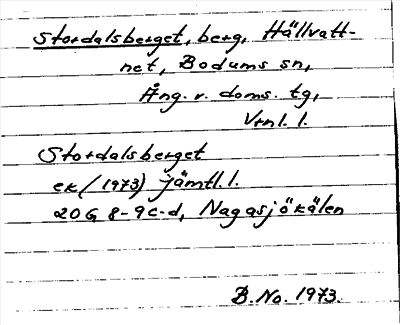 Stordalsberget, berg, Hällvatt-
net, Bodums sn,
Ång. v. doms. tg,
Vrnl. l.
Stordalsberget
ek (1973) Jämtl. l.
20G 8-9c-d, Nagasjökälen
B. No. 1973.